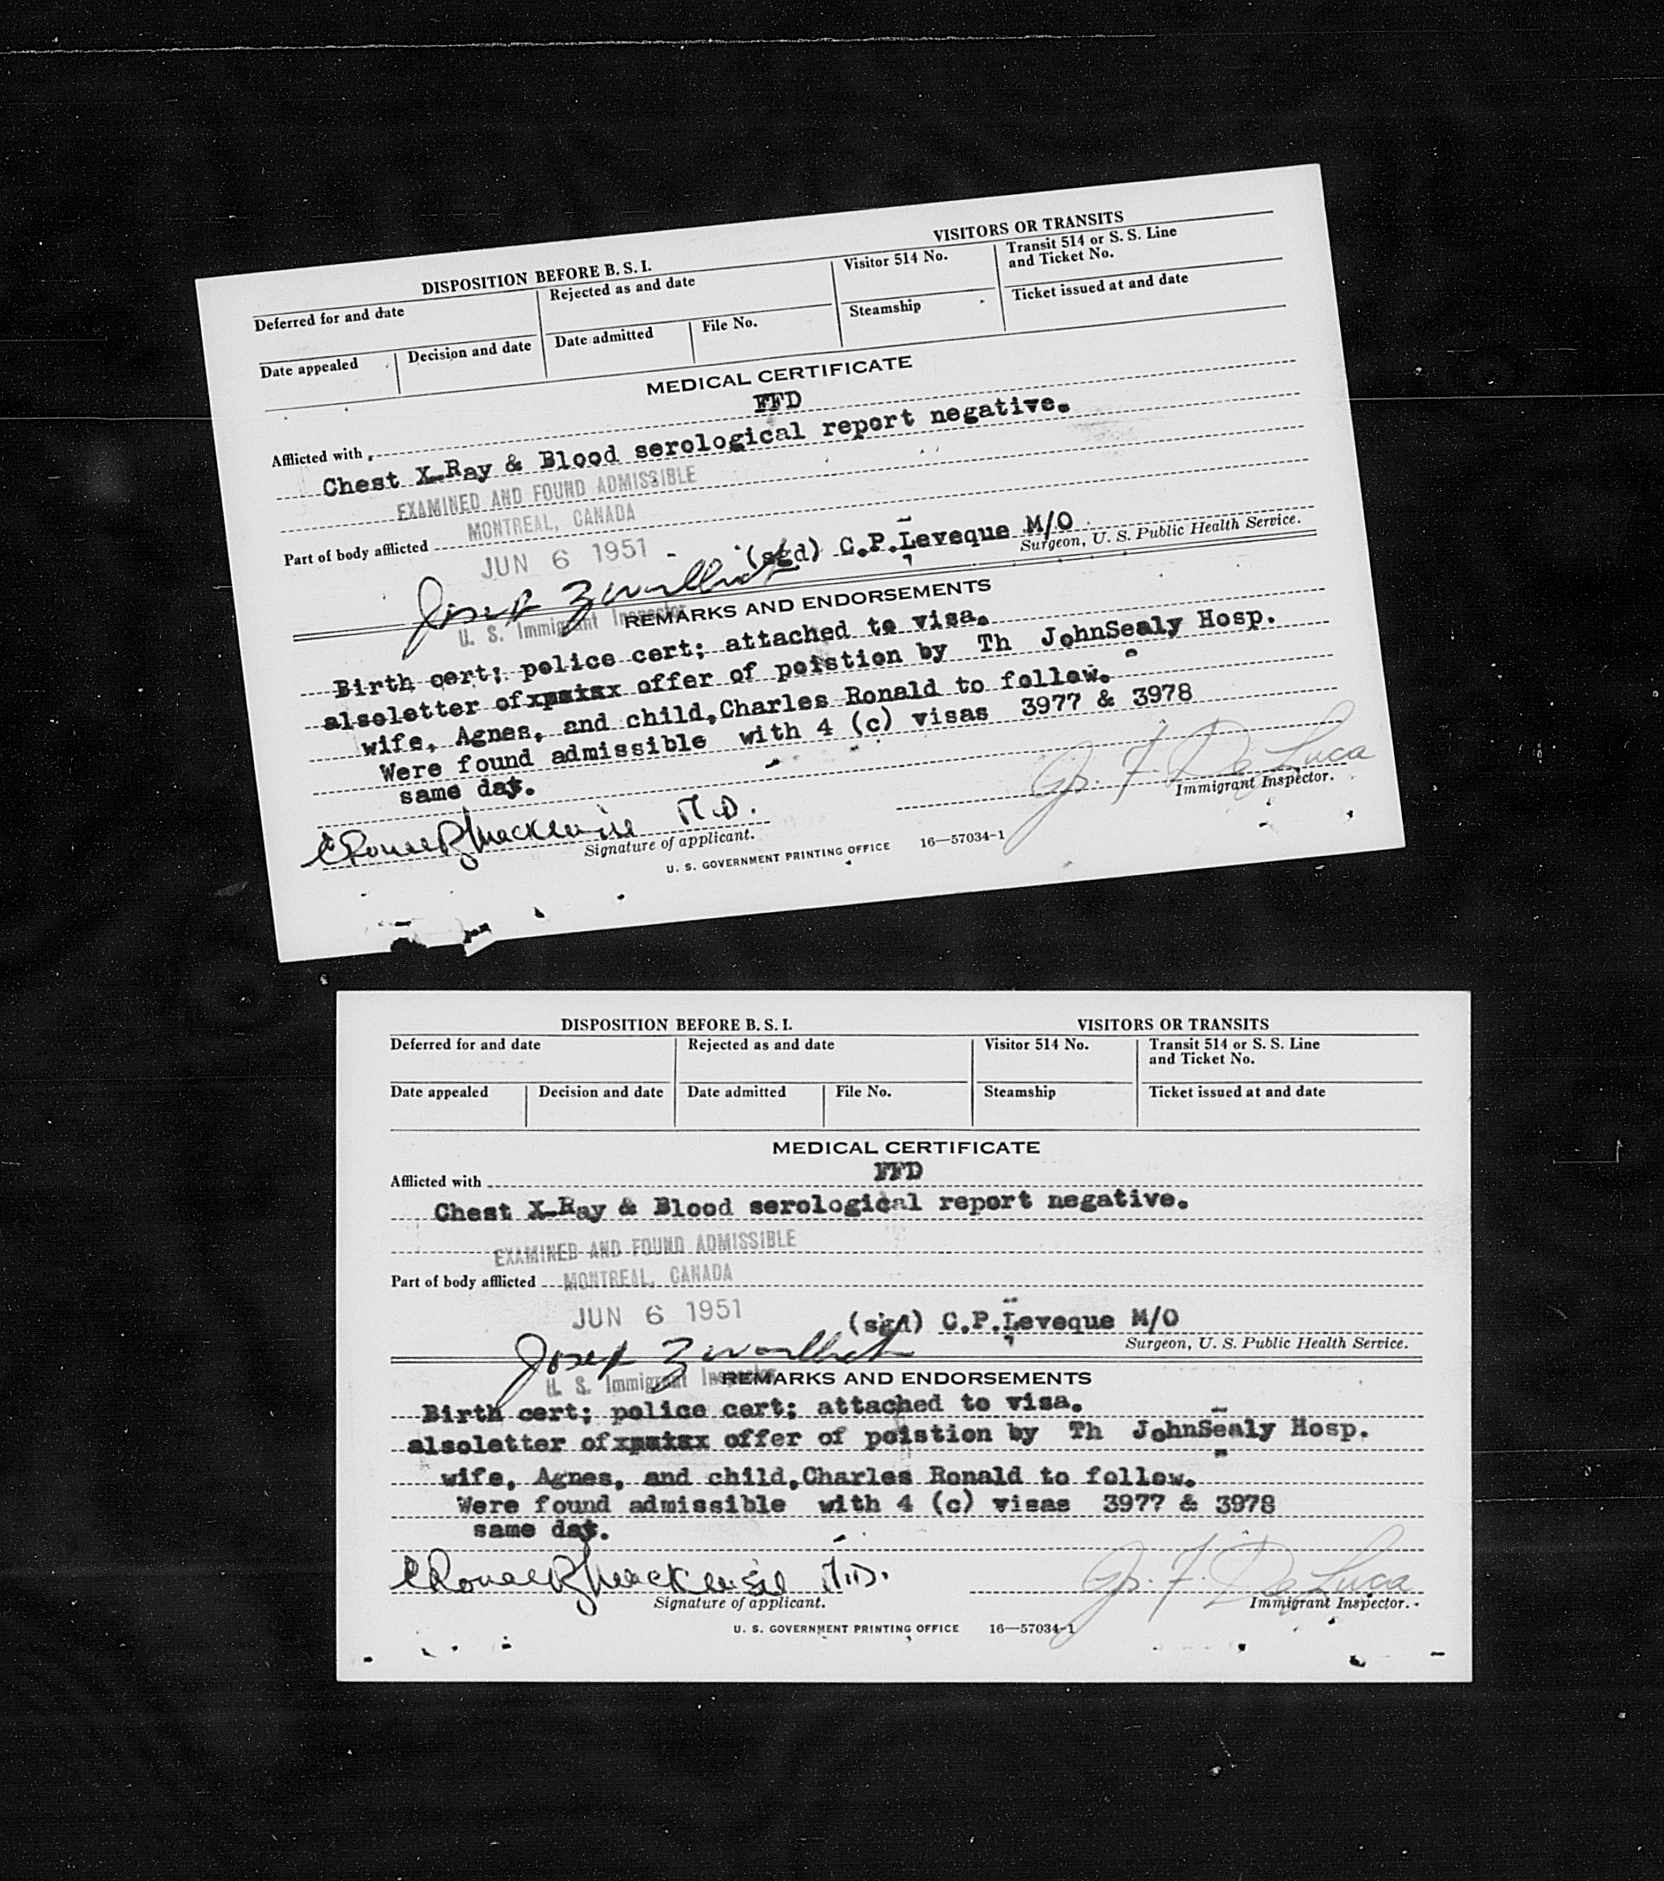 DISPOSITION BEFORE B. S. I. VISITORS OR TRANSITS
Deferred for and date Rejected as and date Visitor 514 No. Transit 514 or S. S. Line
and Ticket No.
Date appealed Decision and date Date admitted File No. Steamship Ticket issued at and date
MEDICAL CERTIFICATE
FFD
Afflicted with
Chest X-Ray & Blood serological report negative.
EXAMINED AND FOUND ADMISSIBLE
MONTREAL, CANADA
Part of body afflicted
JUN 6 1951
(sgd) C.P.Leveque M/O
Surgeon, U. S. Public Health Service.
Josep
U. S. Immigrant Inspector
REMARKS AND ENDORSEMENTS
Birth cert; police cert; attached to visa.
alsoletter of offer of poistion by Th JohnSealy Hosp.
wife, Agnes, and child,Charles Ronald to follow.
Were found admissible with 4 (c) visas 3977 & 3978
same day.
MacKenzie M.D.
Signature of applicant.
F. De Luca
Immigrant Inspector.
U. S. GOVERNMENT PRINTING OFFICE 16—57034-1
DISPOSITION BEFORE B. S. I. VISITORS OR TRANSITS
Deferred for and date Rejected as and date Visitor 514 No. Transit 514 or S. S. Line
and Ticket No.
Date appealed Decision and date Date admitted File No. Steamship Ticket issued at and date
MEDICAL CERTIFICATE
FFD
Afflicted with
Chest X-Ray & Blood serological report negative.
EXAMINED AND FOUND ADMISSIBLE
Part of body afflicted MONTREAL, CANADA
JUN 6 1951
(sgd) C.P.Leveque M/O
Surgeon, U. S. Public Health Service.
Josep
U. S. Immigrant Inspector
REMARKS AND ENDORSEMENTS
Birth cert; police cert; attached to visa.
alsoletter of offer of poistion by Th JohnSealy Hosp.
wife, Agnes, and child,Charles Ronald to follow.
Were found admissible with 4 (c) visas 3977 & 3978
same day.
MacKenzie M.D.
Signature of applicant.
F. De Luca
Immigrant Inspector.
U. S. GOVERNMENT PRINTING OFFICE 16—57034-1